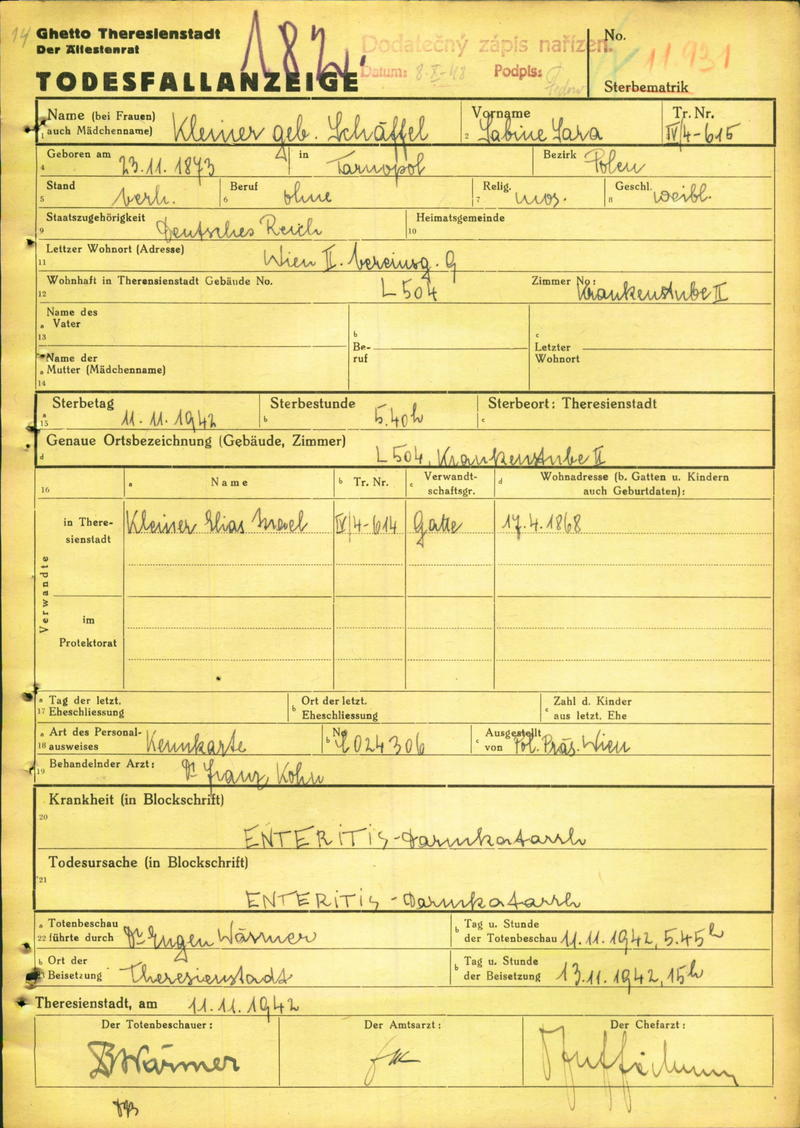 14 Ghetto Theresienstadt
Der Ältestenrat
TODESFALLANZEIGE
182.
Dodatečný zápis nařízen.
Datum: 8-X-48 Podpis:
No. 11.931
Sterbematrik
Name (bei Frauen) Vorname Tr. Nr.
1 auch Mädchenname) Kleiner geb. Schäffel 2 Sabine Sara IV/4-615
Geboren am 23.11.1873 in Tarnopol Bezirk Polen
4
Stand verh. Beruf ohne Relig. mos. Geschl. weibl.
5 6 7 8
Staatszugehörigkeit Deutsches Reich Heimatsgemeinde
9 10
Lettzer Wohnort (Adresse) Wien II. Vereinsg. 9
11
Wohnhaft in Therensienstadt Gebäude No. L 504 Zimmer No: Krankenstube II
12
Name des
a Vater
13
b Beruf
c Letzter Wohnort
Name der
a Mutter (Mädchenname)
14
Sterbetag 11.11.1942 Sterbestunde 5.40h Sterbeort: Theresienstadt
a 15 b c
Genaue Ortsbezeichnung (Gebäude, Zimmer)
d L 504, Krankenstube II
16 a Name b Tr. Nr. c Verwandtschaftsgr. d Wohnadresse (b. Gatten u. Kindern auch Geburtdaten):
Verwandte
in Theresienstadt Kleiner Elias Israel IV/4-614 Gatte 17.4.1868
im Protektorat
a Tag der letzt. b Ort der letzt. c Zahl d. Kinder
17 Eheschliessung Eheschliessung aus letzt. Ehe
a Art des Personal- b No Ausgestellt
18 ausweises Kennkarte 024306 c von Pol. Präs. Wien
Behandelnder Arzt: Dr Franz Kohn
19
Krankheit (in Blockschrift)
20
ENTERITIS-Darmkatarrh
Todesursache (in Blockschrift)
21
ENTERITIS-Darmkatarrh
a Totenbeschau b Tag u. Stunde
22 führte durch Dr Eugen Wärmer der Totenbeschau 11.11.1942, 5.45h
b Ort der b Tag u. Stunde
Beisetzung Theresienstadt der Beisetzung 13.11.1942, 15h
Theresienstadt, am 11.11.1942
Der Totenbeschauer: Der Amtsarzt: Der Chefarzt:
Wärmer